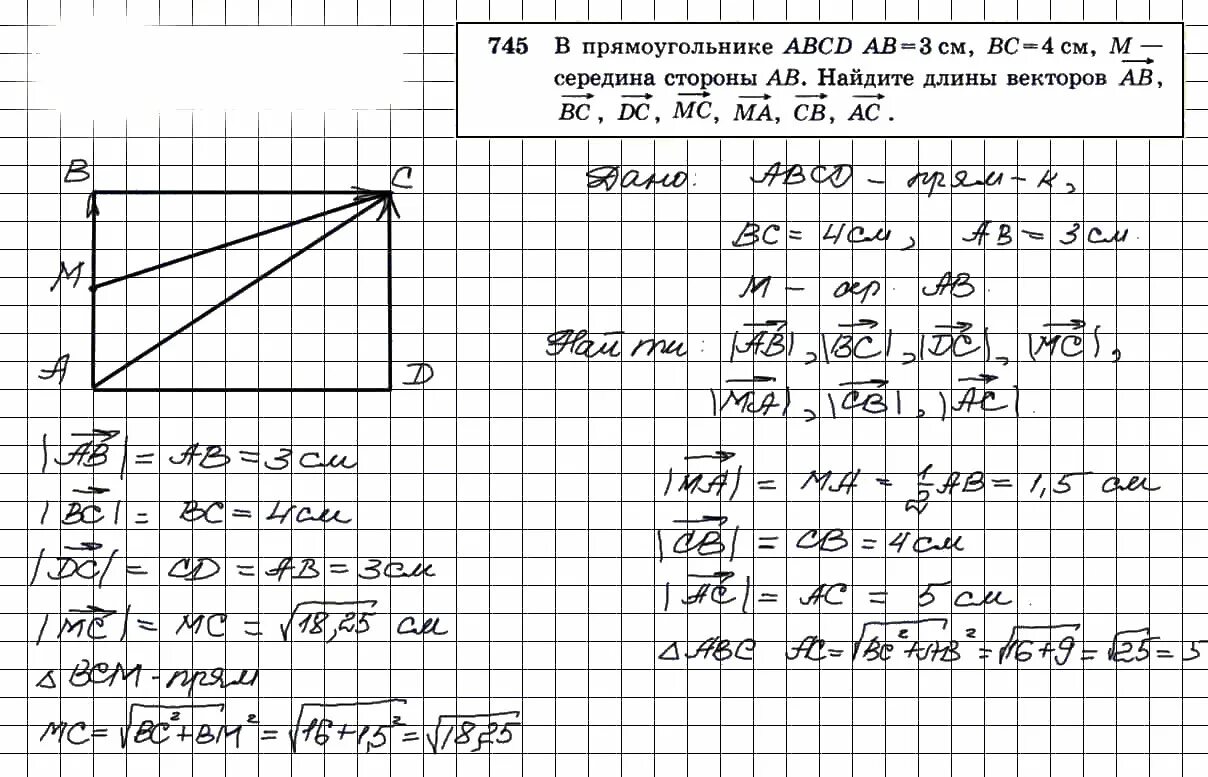 745 В прямоугольнике ABCD AB=3 см, BC=4 см, M —
середина стороны AB. Найдите длины векторов AB→,
BC→, DC→, MC→, MA→, CB→, AC→.
B
C
M
A
D
Дано: ABCD - прям-к,
BC = 4см, AB = 3см.
M - сер. AB.
Найти: |AB→|, |BC→|, |DC→|, |MC→|,
|MA→|, |CB→|, |AC→|.
|AB→| = AB = 3см
|BC→| = BC = 4см
|DC→| = CD = AB = 3см
|MC→| = MC = √18,25 см
△ BCM - прям
MC = √BC²+BM² = √16+1,5² = √18,25
|MA→| = MA = 1/2 AB = 1,5 см
|CB→| = CB = 4см
|AC→| = AC = 5 см.
△ ABC AC = √BC²+AB² = √16+9 = √25 = 5